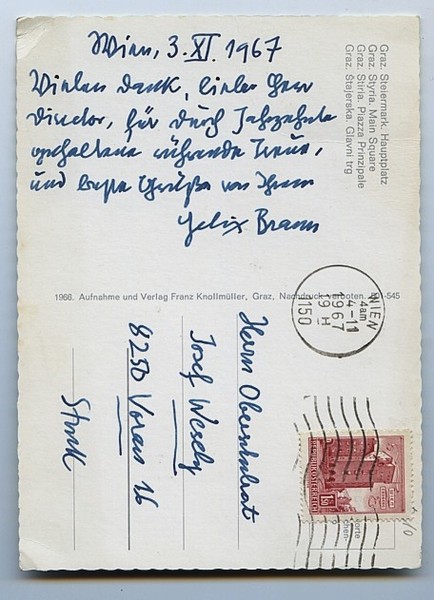 Wien, 3. XI. 1967
Vielen Dank, lieber Herr
Director, für durch Jahrzehnte
gehaltene rührende Treue,
und beste Grüße von Ihrem
Felix Braun
Graz. Steiermark. Hauptplatz
Graz. Styria. Main Square
Graz. Stiria. Piazza Prinzipale
Graz. Štajerska. Glavni trg
1966. Aufnahme und Verlag Franz Knollmüller, Graz, Nachdruck verboten.
-545
WIEN
4am
4-11
1967
19 H
150
Herrn Oberschulrat
Josef Wesely
8250 Vorau 16
Stmk
REPUBLIK ÖSTERREICH
1.50